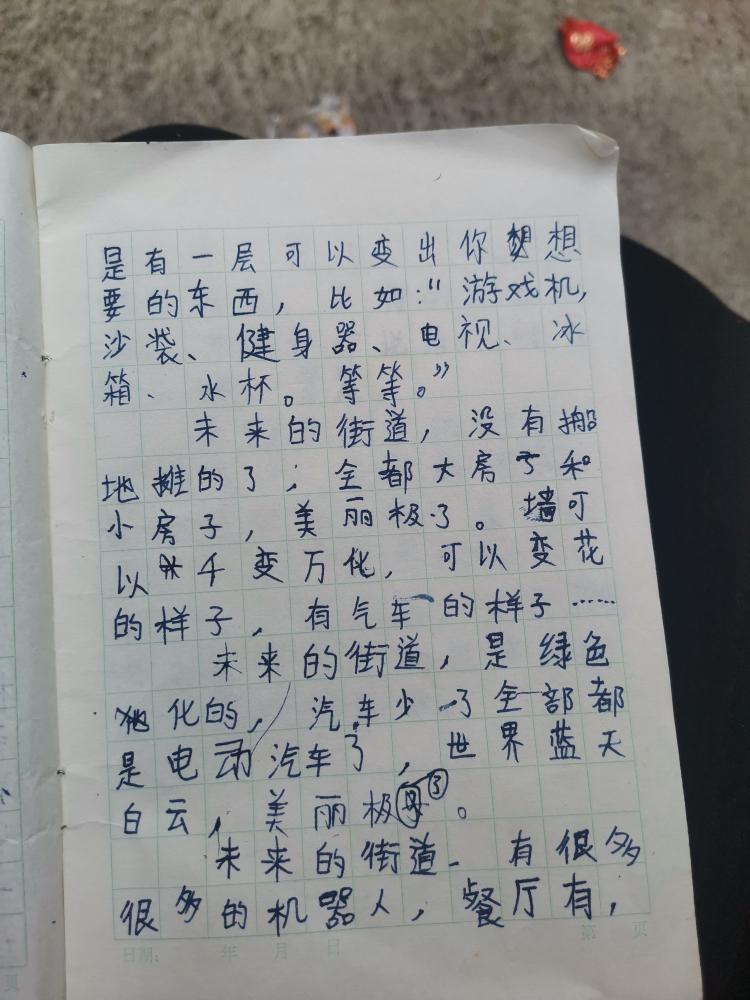 是有一层可以变出你想想
要的东西，比如：“游戏机，
沙袋、健身器、电视、冰
箱、水杯。等等。”
未来的街道，没有搬
地摊的了；全都大房子和
小房子，美丽极了。墙可
以千变万化，可以变花
的样子，有汽车的样子……
未来的街道，是绿色
化的，汽车少了全部都
是电动汽车了，世界蓝天
白云，美丽极了。
未来的街道。有很多
很多的机器人，餐厅有，
日期： 年 月 日 第 页
页